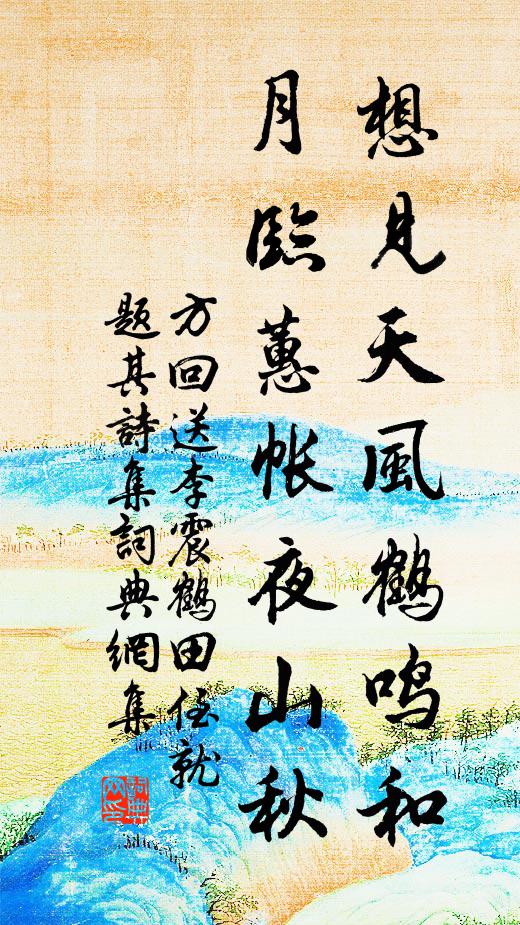 想見天風鶴鳴和
月臨蕙帳夜山秋
方回送李震鶴田侄就
題其詩集詞典網集